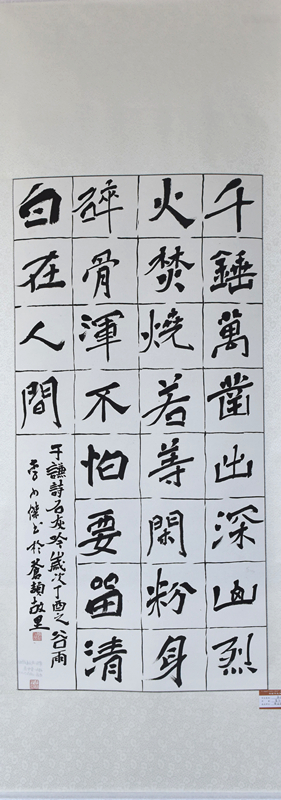 千錘萬凿出深山烈
火焚燒若等閑粉身
碎骨渾不怕要留清
白在人間
于謙詩石灰吟歲次丁酉之谷雨
傑书於蒼頡故里